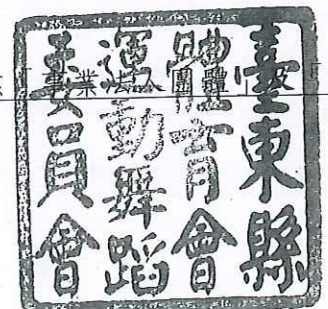 臺東縣
體育會
運動舞蹈
委員會